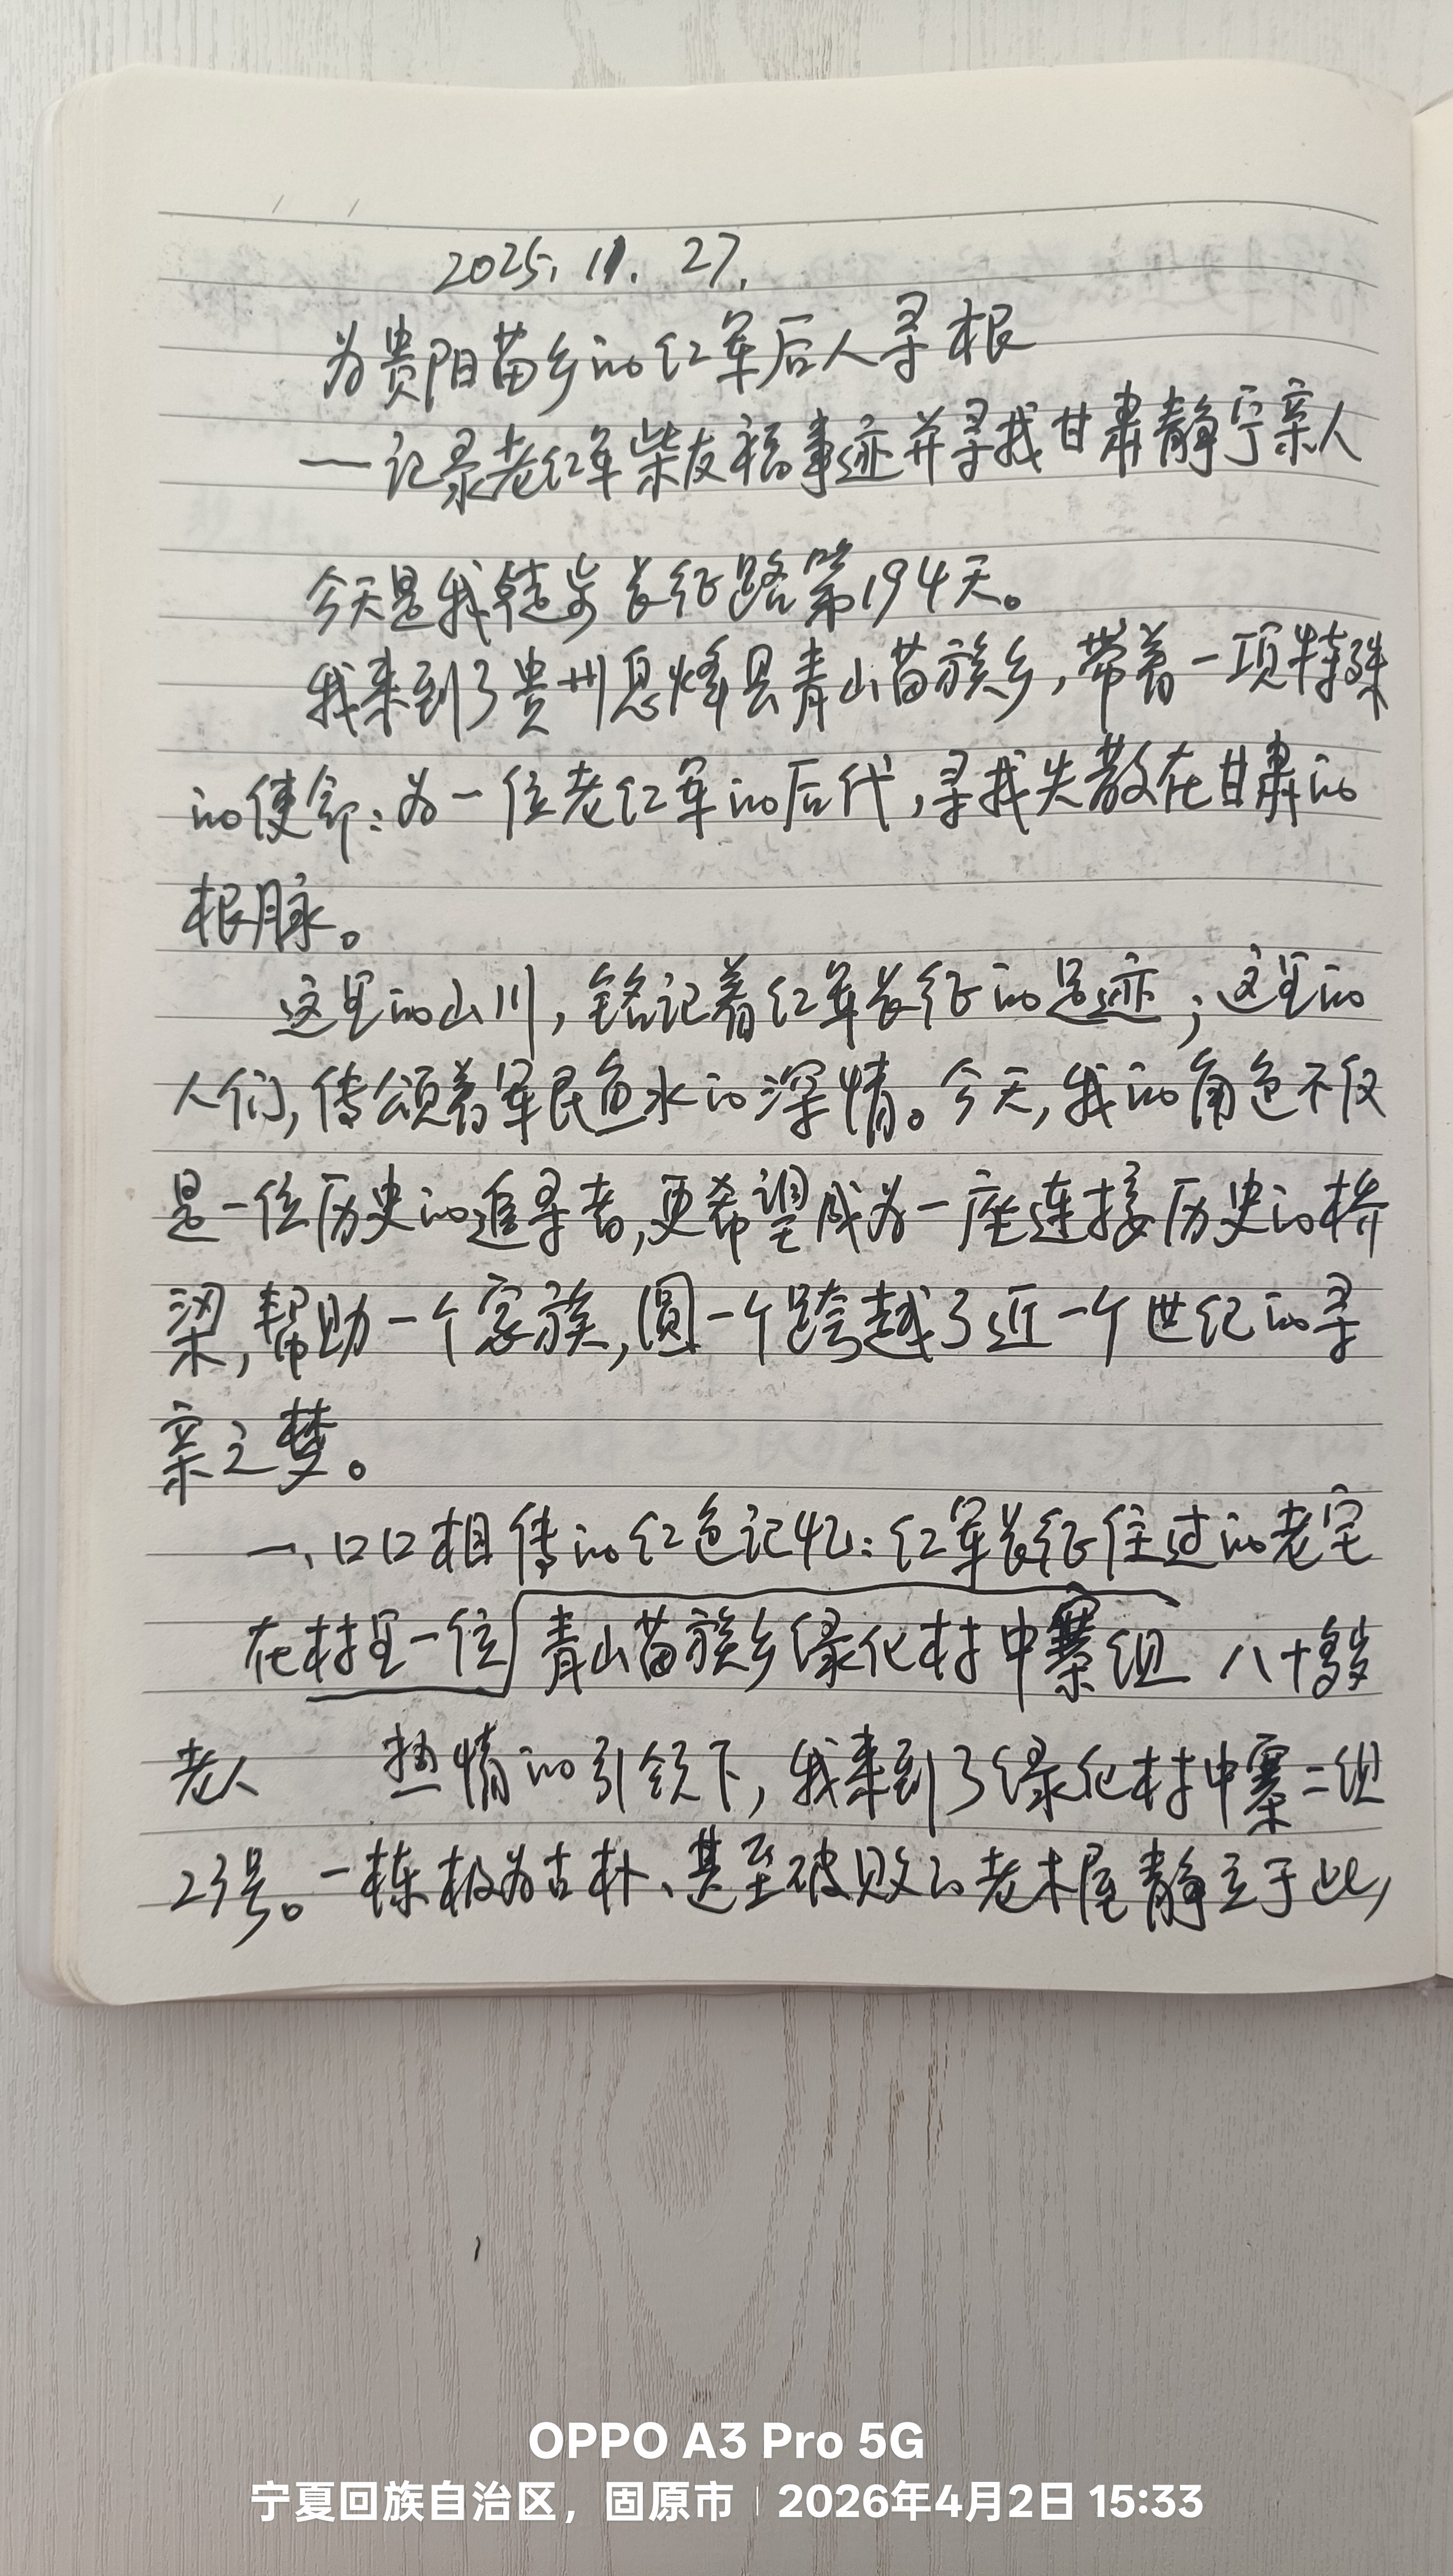 2025. 11. 27.
为贵阳苗乡的红军后人寻根
——记录老红军柴友福事迹并寻找甘肃静宁亲人
今天是我徒步长征路第194天。
我来到了贵州息烽县青山苗族乡，带着一项特殊
的使命：为一位老红军的后代，寻找失散在甘肃的
根脉。
这里的山川，铭记着红军长征的足迹；这里的
人们，传颂着军民鱼水的深情。今天，我的角色不仅
是一位历史的追寻者，更希望成为一座连接历史的桥
梁，帮助一个家族，圆一个跨越了近一个世纪的寻
亲之梦。
一、口口相传的红色记忆：红军长征住过的老宅
在村里一位 青山苗族乡绿化村中寨组 八十多岁
老人 热情的引领下，我来到了绿化村中寨二组
23号。一栋极为古朴、甚至破败的老木屋静立于此，
OPPO A3 Pro 5G
宁夏回族自治区，固原市 | 2026年4月2日 15:33